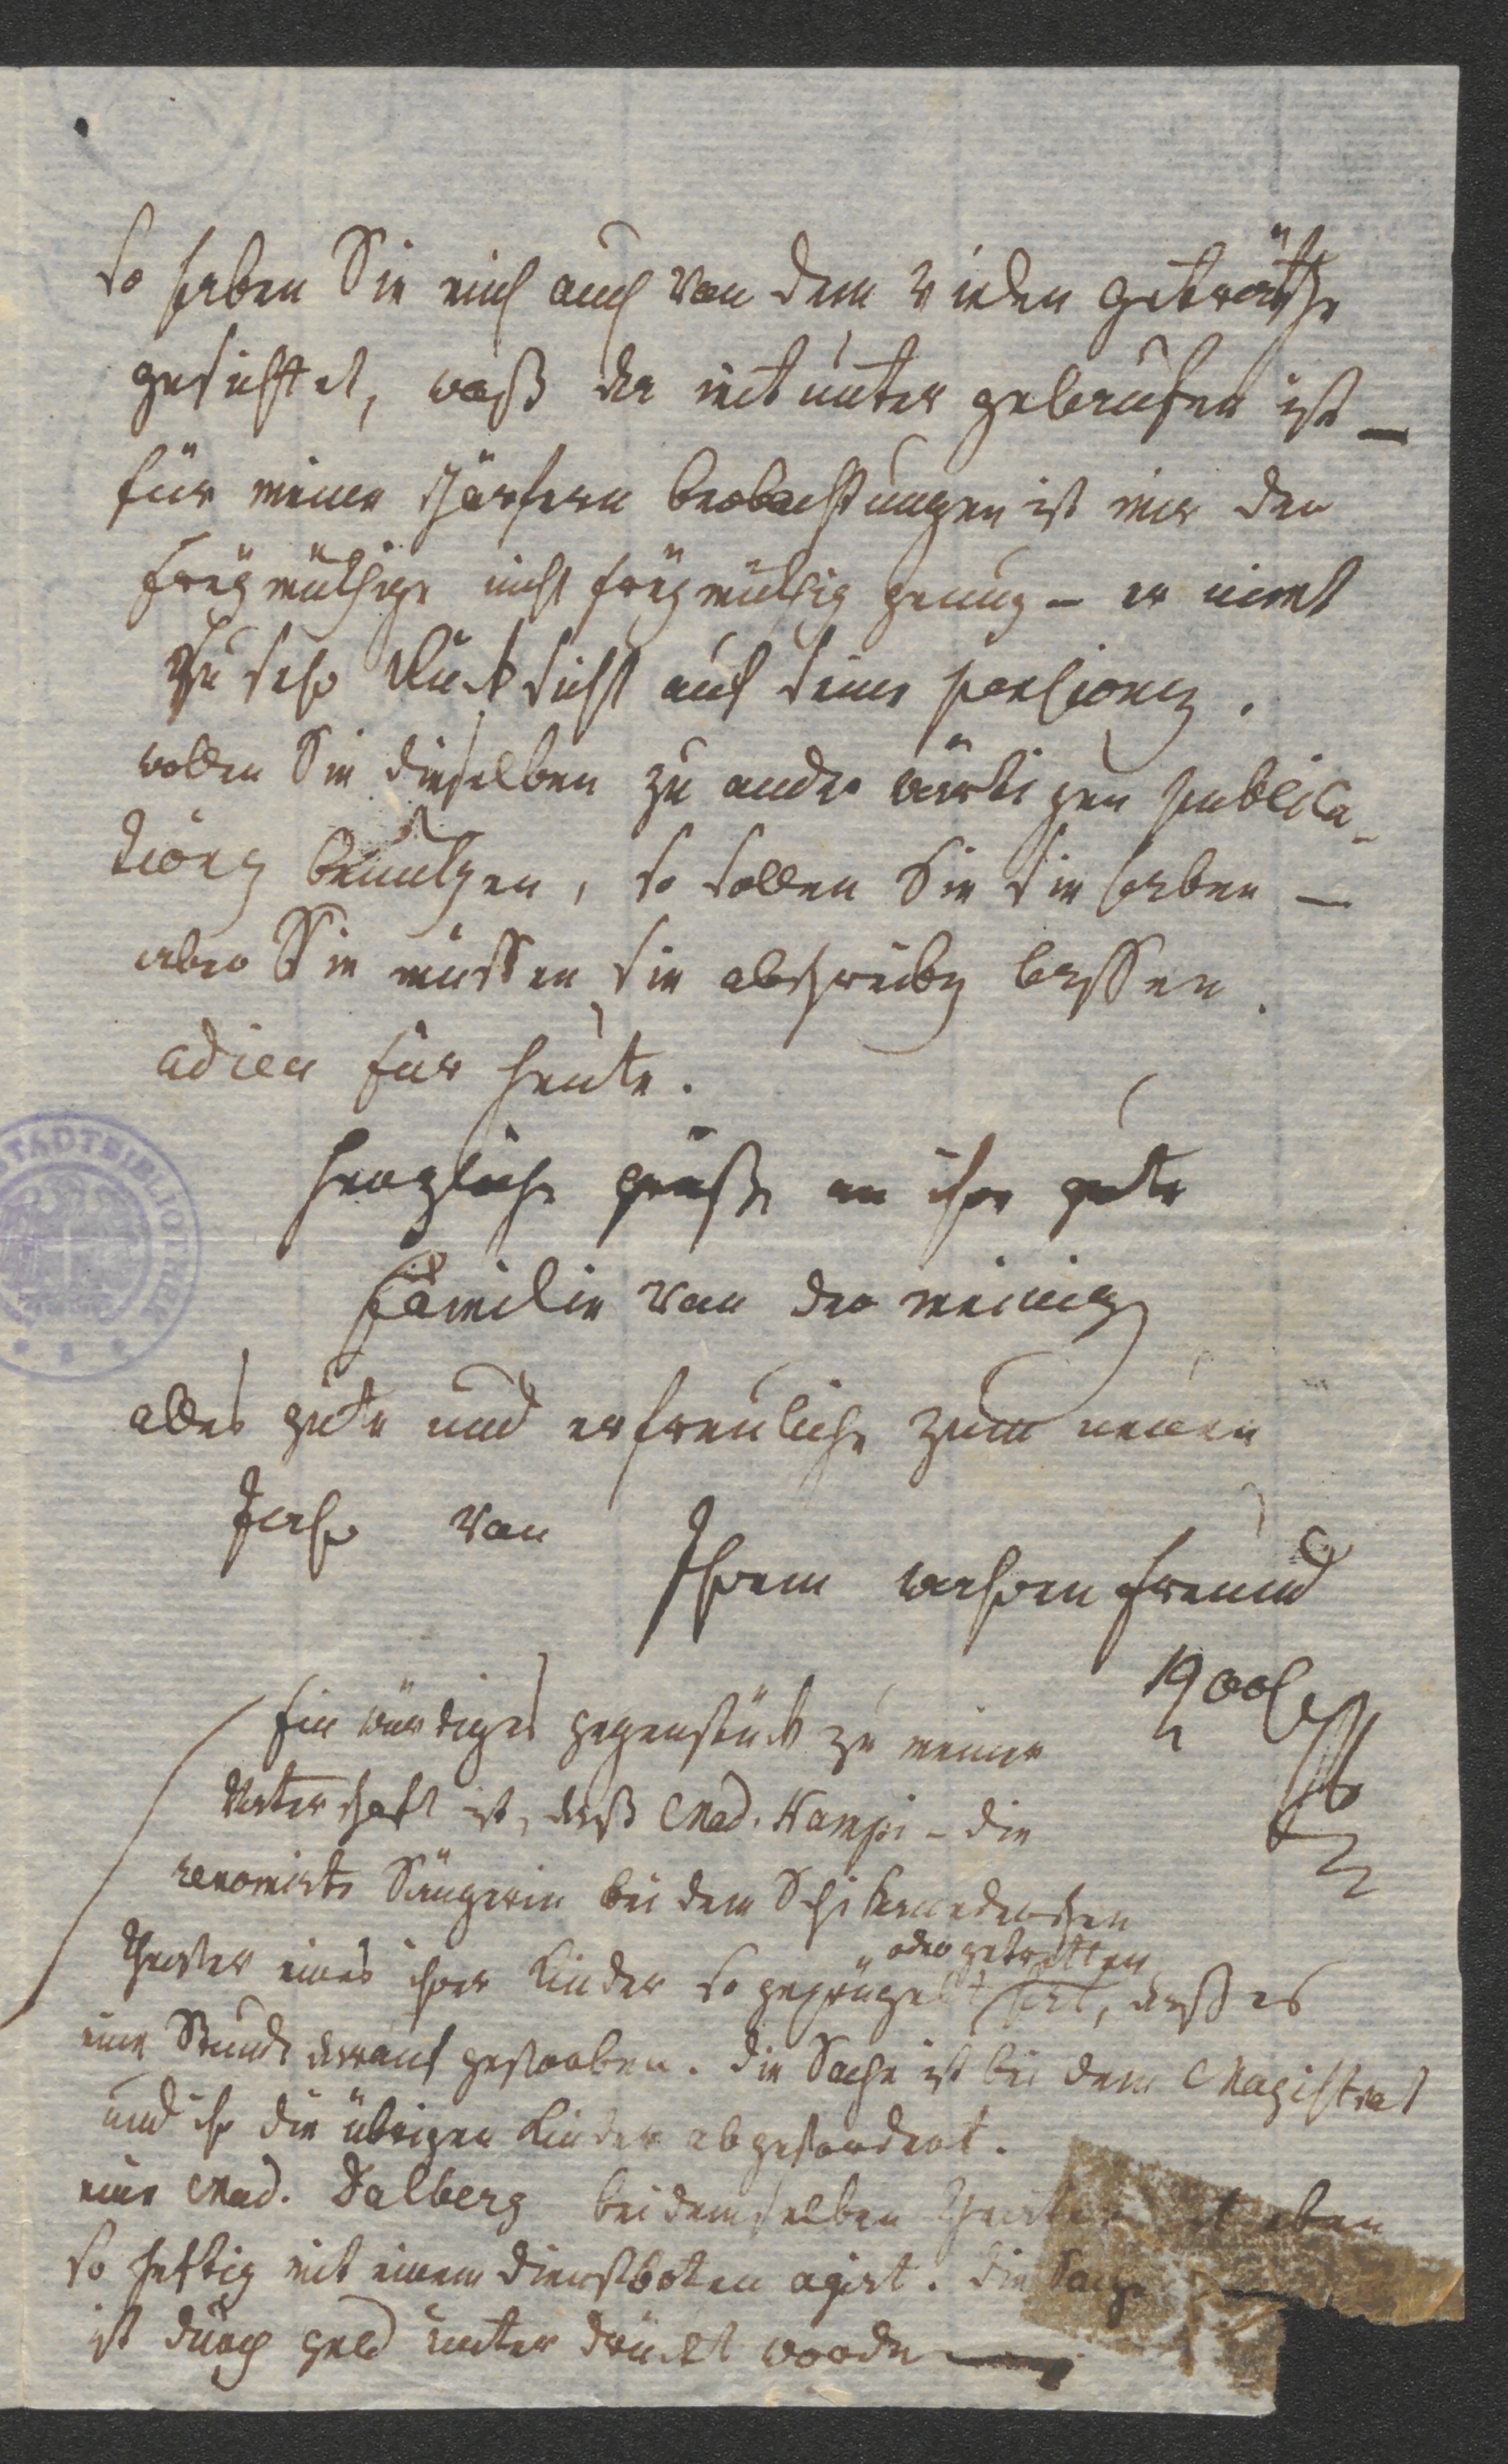 so haben Sie mich auch von dem vielen geträtsche
gesichttet, waß da mit unter gelaufen ist –
für meine schärfern beobachtungen ist mir der
freymüthige nicht freymüthig genug – er nimt
zu sehr Rücksicht auf seine personen.
wollen Sie dieselben zu anderwärtigen publica-
tionen benutzen, so sollen Sie sie haben –
aber Sie müssen sie abschreiben lassen.
adieu für heute.
herzliche grüße an ihre gute
Familie von der meinigen
alles gute und erfreuliche zum neuen
Jahr von
Ihrem wahren Freund
Ein würdiges gegenstück zu meiner
Vaterschaft ist, daß Mad. Kampi – die
renomirte Sängerin bei dem Schikanederschen
oder getretten
Theater eines ihrer Kinder so geprügelt hat, daß es
eine Stunde darauf gestorben. die Sache ist bei dem Magistrat
und ihr die übrigen Kinder abgesondert.
eine Mad. Dalberg bei demselben Theater hat eben
so heftig mit einem dienstboten agirt. die Sache
ist durch geld unterdrückt worden
STADTBIBLIOTHEK